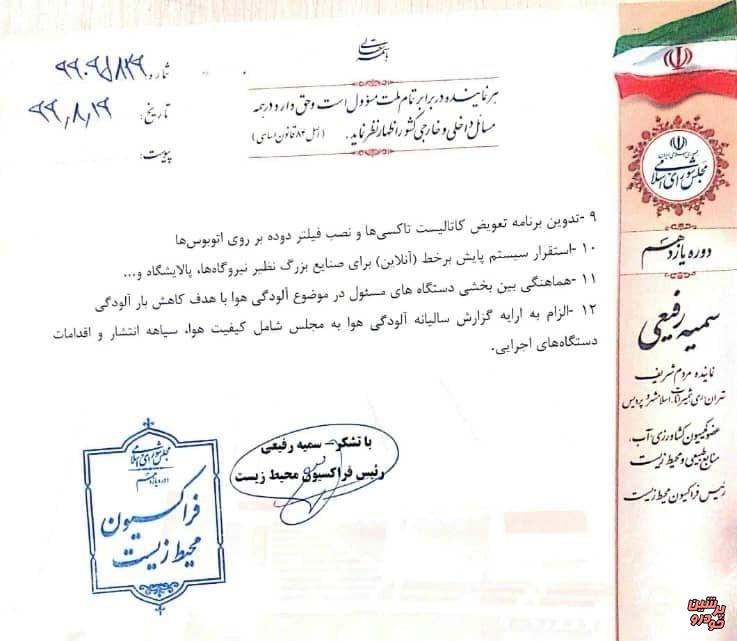 بسمه تعالی
شماره: ۹۹۰۹۵/۸۲۹
تاریخ: ۹۹٫۸٫۱۹
پیوست:
هر نماینده در برابر تمام ملت مسؤول است و حق دارد در همه
مسائل داخلی و خارجی کشور اظهار نظر نماید. (اصل ۸۴ قانون اساسی)
جمهوری اسلامی ایران
مجلس شورای اسلامی
دوره یازدهم
سمیه رفیعی
نماینده مردم شریف
تهران، ری، شمیرانات، اسلامشهر و پردیس
عضو کمیسیون کشاورزی، آب،
منابع طبیعی و محیط زیست
رئیس فراکسیون محیط زیست
۹ -تدوین برنامه تعویض کاتالیست تاکسی‌ها و نصب فیلتر دوده بر روی اتوبوس‌ها
۱۰ -استقرار سیستم پایش برخط (آنلاین) برای صنایع بزرگ نظیر نیروگاه‌ها، پالایشگاه و...
۱۱ -هماهنگی بین بخشی دستگاه های مسئول در موضوع آلودگی هوا با هدف کاهش بار آلودگی
۱۲ -الزام به ارایه گزارش سالیانه آلودگی هوا به مجلس شامل کیفیت هوا، سیاهه انتشار و اقدامات
دستگاه‌های اجرایی.
با تشکر- سمیه رفیعی
رئیس فراکسیون محیط زیست
مجلس شورای اسلامی
دوره یازدهم
فراکسیون
محیط زیست
پرشین
خودرو